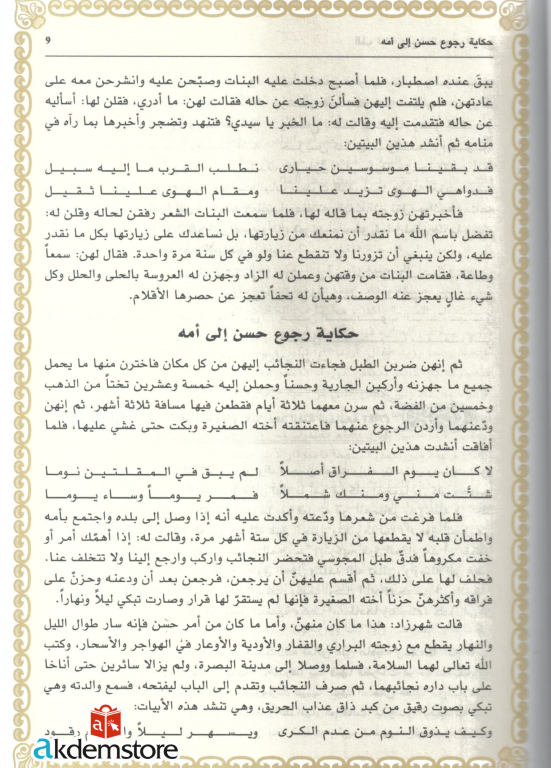 حكاية رجوع حسن إلى أمه
9
يبقَ عنده اصطبار، فلما أصبح دخلت عليه البنات وصبّحن عليه وانشرحن معه على
عادتهن، فلم يلتفت إليهن فسألنَ زوجته عن حاله فقالت لهن: ما أدري، فقلن لها: أسأليه
عن حاله فتقدمت إليه وقالت له: ما الخبر يا سيدي؟ فتنهد وتضجر وأخبرها بما رآه في
منامه ثم أنشد هذين البيتين:
قد بقينا موسوسين حيارى نطلب القرب ما إليه سبيل
فدواهي الهوى تزيد علينا ومقام الهوى علينا ثقيل
فأخبرتهن زوجته بما قاله لها، فلما سمعت البنات الشعر رفقن لحاله وقلن له:
تفضل باسم الله ما نقدر أن نمنعك من زيارتها، بل نساعدك على زيارتها بكل ما نقدر
عليه، ولكن ينبغي أن تزورنا ولا تنقطع عنا ولو في كل سنة مرة واحدة. فقال لهن: سمعاً
وطاعة، فقامت البنات من وقتهن وعملن له الزاد وجهزن له العروسة بالحلى والحلل وكل
شيء غالٍ يعجز عنه الوصف، وهيأن له تحفاً تعجز عن حصرها الأقلام.
حكاية رجوع حسن إلى أمه
ثم إنهن ضربن الطبل فجاءت النجائب إليهن من كل مكان فاخترن منها ما يحمل
جميع ما جهزنه وأركبن الجارية وحسناً وحملن إليه خمسة وعشرين تختاً من الذهب
وخمسين من الفضة، ثم سرن معهما ثلاثة أيام فقطعن فيها مسافة ثلاثة أشهر، ثم إنهن
ودّعنهما وأردن الرجوع عنهما فاعتنقته أخته الصغيرة وبكت حتى غشي عليها، فلما
أفاقت أنشدت هذين البيتين:
لا كان يوم الفراق أصلاً لم يبق في المقلتين نوما
شتَّت مني ومنك شملاً فمر يوماً وساء يوما
فلما فرغت من شعرها ودّعته وأكدت عليه أنه إذا وصل إلى بلده واجتمع بأمه
واطمأن قلبه لا يقطعها من الزيارة في كل ستة أشهر مرة، وقالت له: إذا أهمّك أمر أو
خفت مكروهاً فدقّ طبل المجوسي فتحضر النجائب واركب وارجع إلينا ولا تتخلف عنا.
فحلف لها على ذلك، ثم أقسم عليهنّ أن يرجعن، فرجعن بعد أن ودعنه وحزنّ على
فراقه وأكثرهنّ حزناً أخته الصغيرة فإنها لم يستقرّ لها قرار وصارت تبكي ليلاً ونهاراً.
قالت شهرزاد: هذا ما كان منهنّ، وأما ما كان من أمر حسن فإنه سار طوال الليل
والنهار يقطع مع زوجته البراري والقفار والأودية والأوعار في الهواجر والأسحار، وكتب
الله تعالى لهما السلامة، فسلما ووصلا إلى مدينة البصرة، ولم يزالا سائرين حتى أناخا
على باب داره نجائبهما، ثم صرف النجائب وتقدم إلى الباب ليفتحه، فسمع والدته وهي
تبكي بصوت رقيق من كبد ذاق عذاب الحريق، وهي تنشد هذه الأبيات:
وكيف يذوق النوم من عدم الكرى ويسهر ليلاً رقود
akdemstore